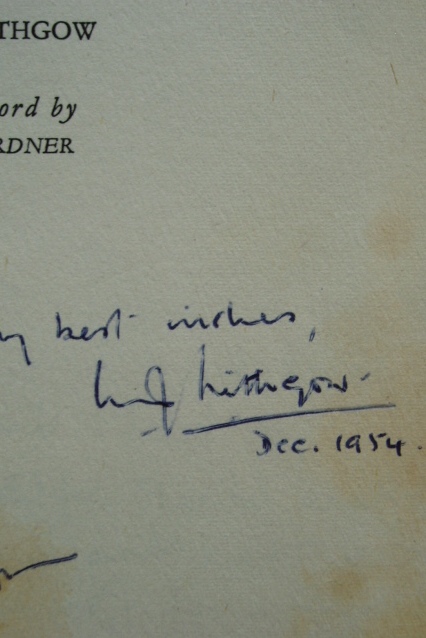 THGOW
ord by
RDNER
best wishes,
Lithgow
Dec. 1954.